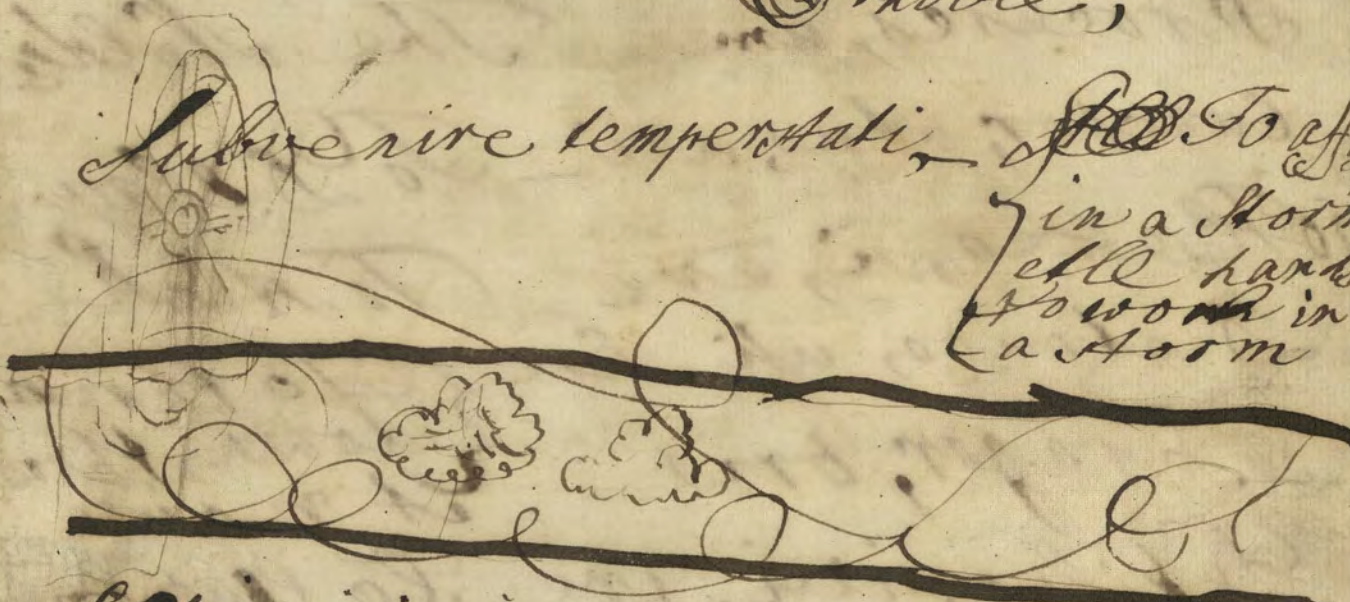 Subvenire temperstati, To ass
in a Storm
All hands
to work in
a storm